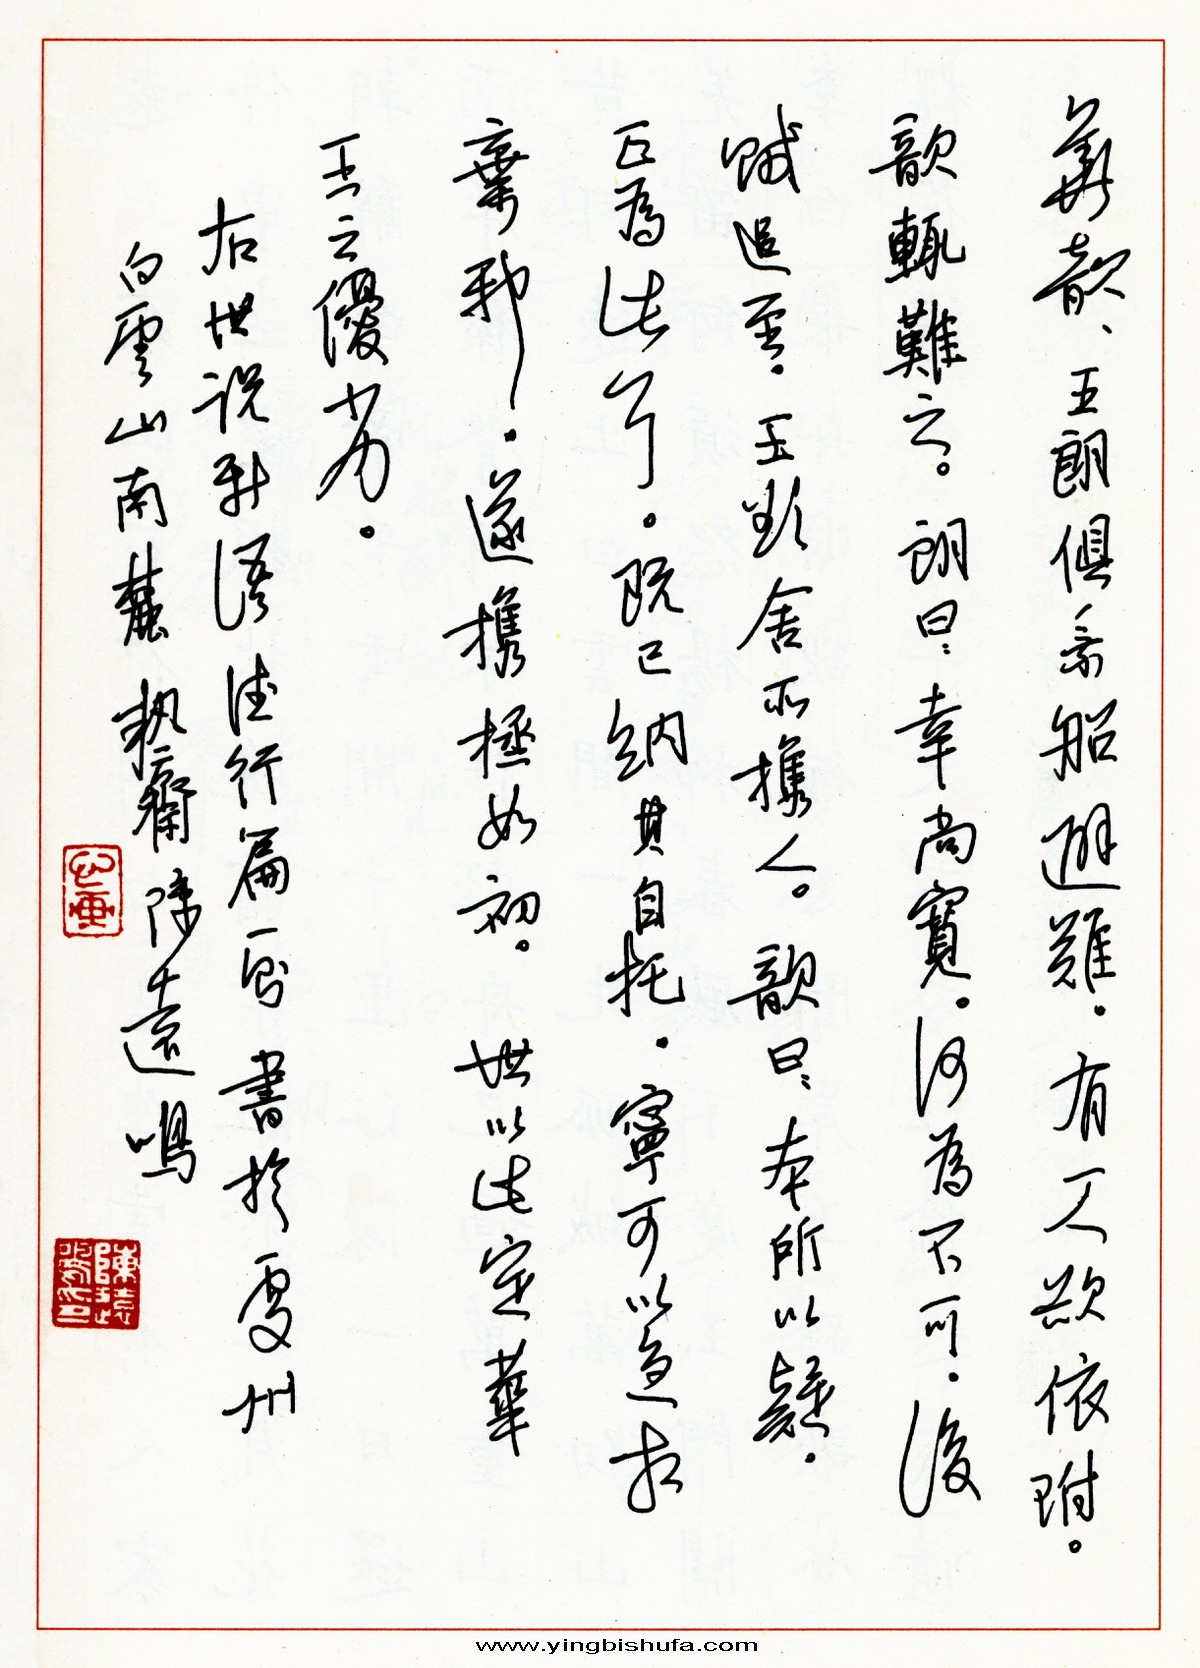 華歆、王朗俱乘船避難。有人欲依附。
歆輒難之。朗曰:幸尚寬。何為不可。後
賊追至。王欲舍所攜人。歆曰:本所以疑。
正為此耳。既已納其自托。寧可以急相
棄邪。遂攜拯如初。世以此定華
王之優劣。
右世说新語德行篇一則書於處州
白雲山南麓執齋陳遠鳴
心畫
陳遠鳴印
www.yingbishufa.com